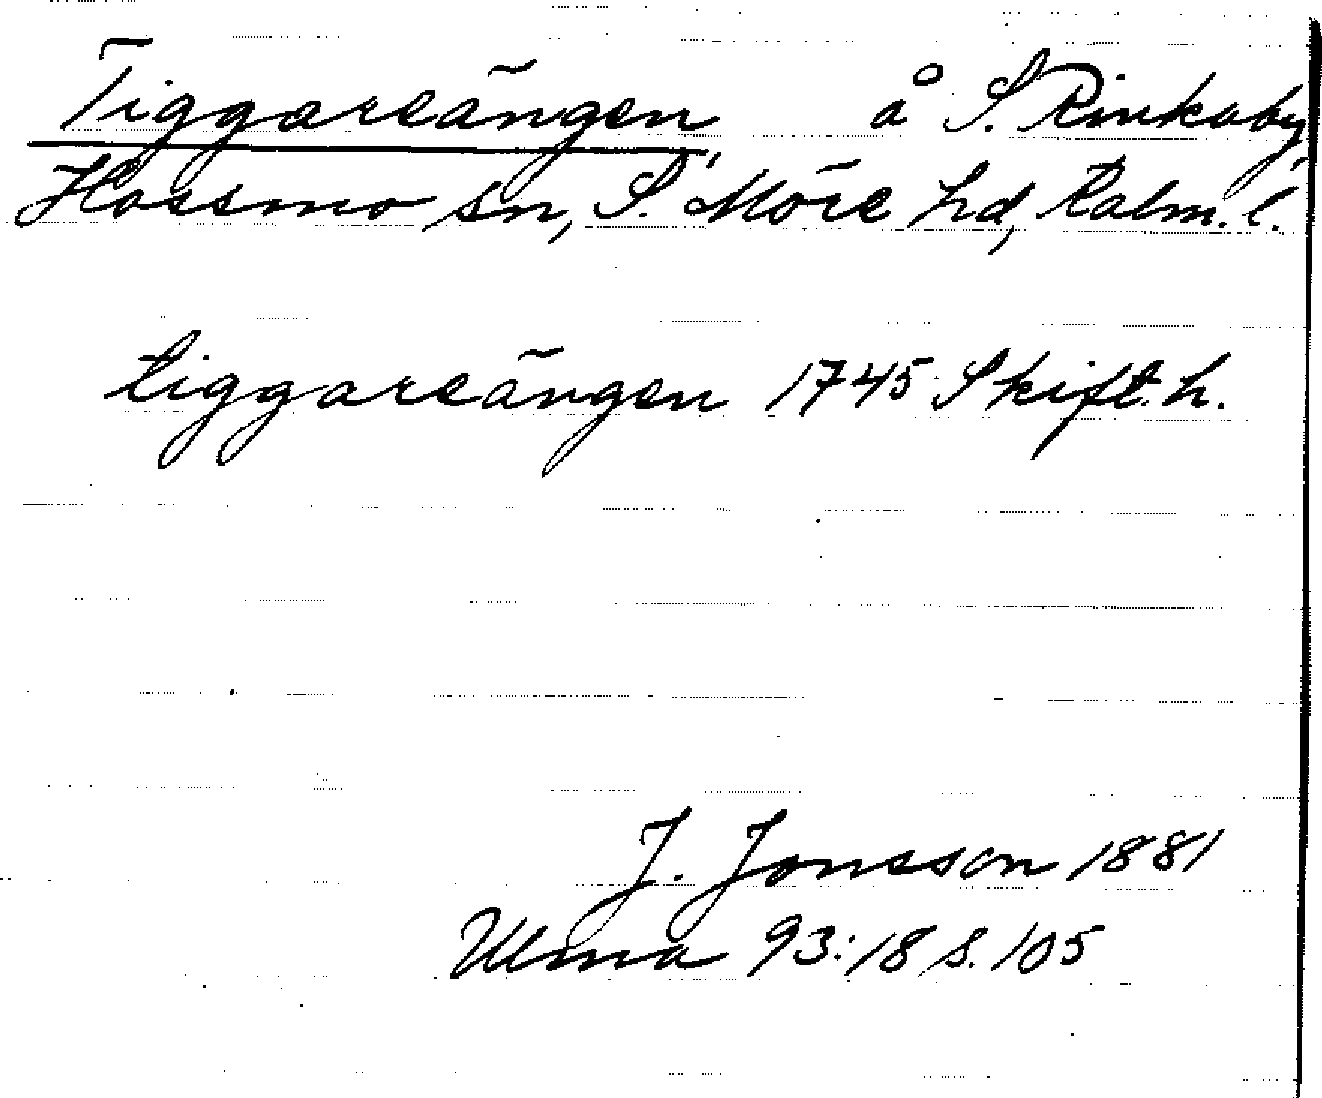 Tiggareängen, å S. Rinkaby,
Hossmo sn, S. Möre hd, Kalm. l.
tiggareängen 1745 Skift. h.
J. Jonsson 1881
Ulma 93:18 s. 105